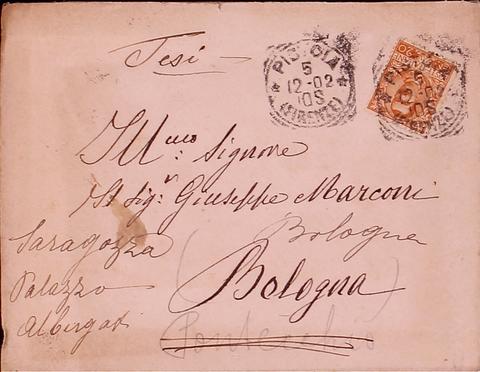 Tesi
PISTOIA
5
12-02
10S
(FIRENZE)
Ill.mo Signore
Sig.r Giuseppe Marconi
Bologna
Saragozza
Bologna
Palazzo
Albergati
Pontecchio